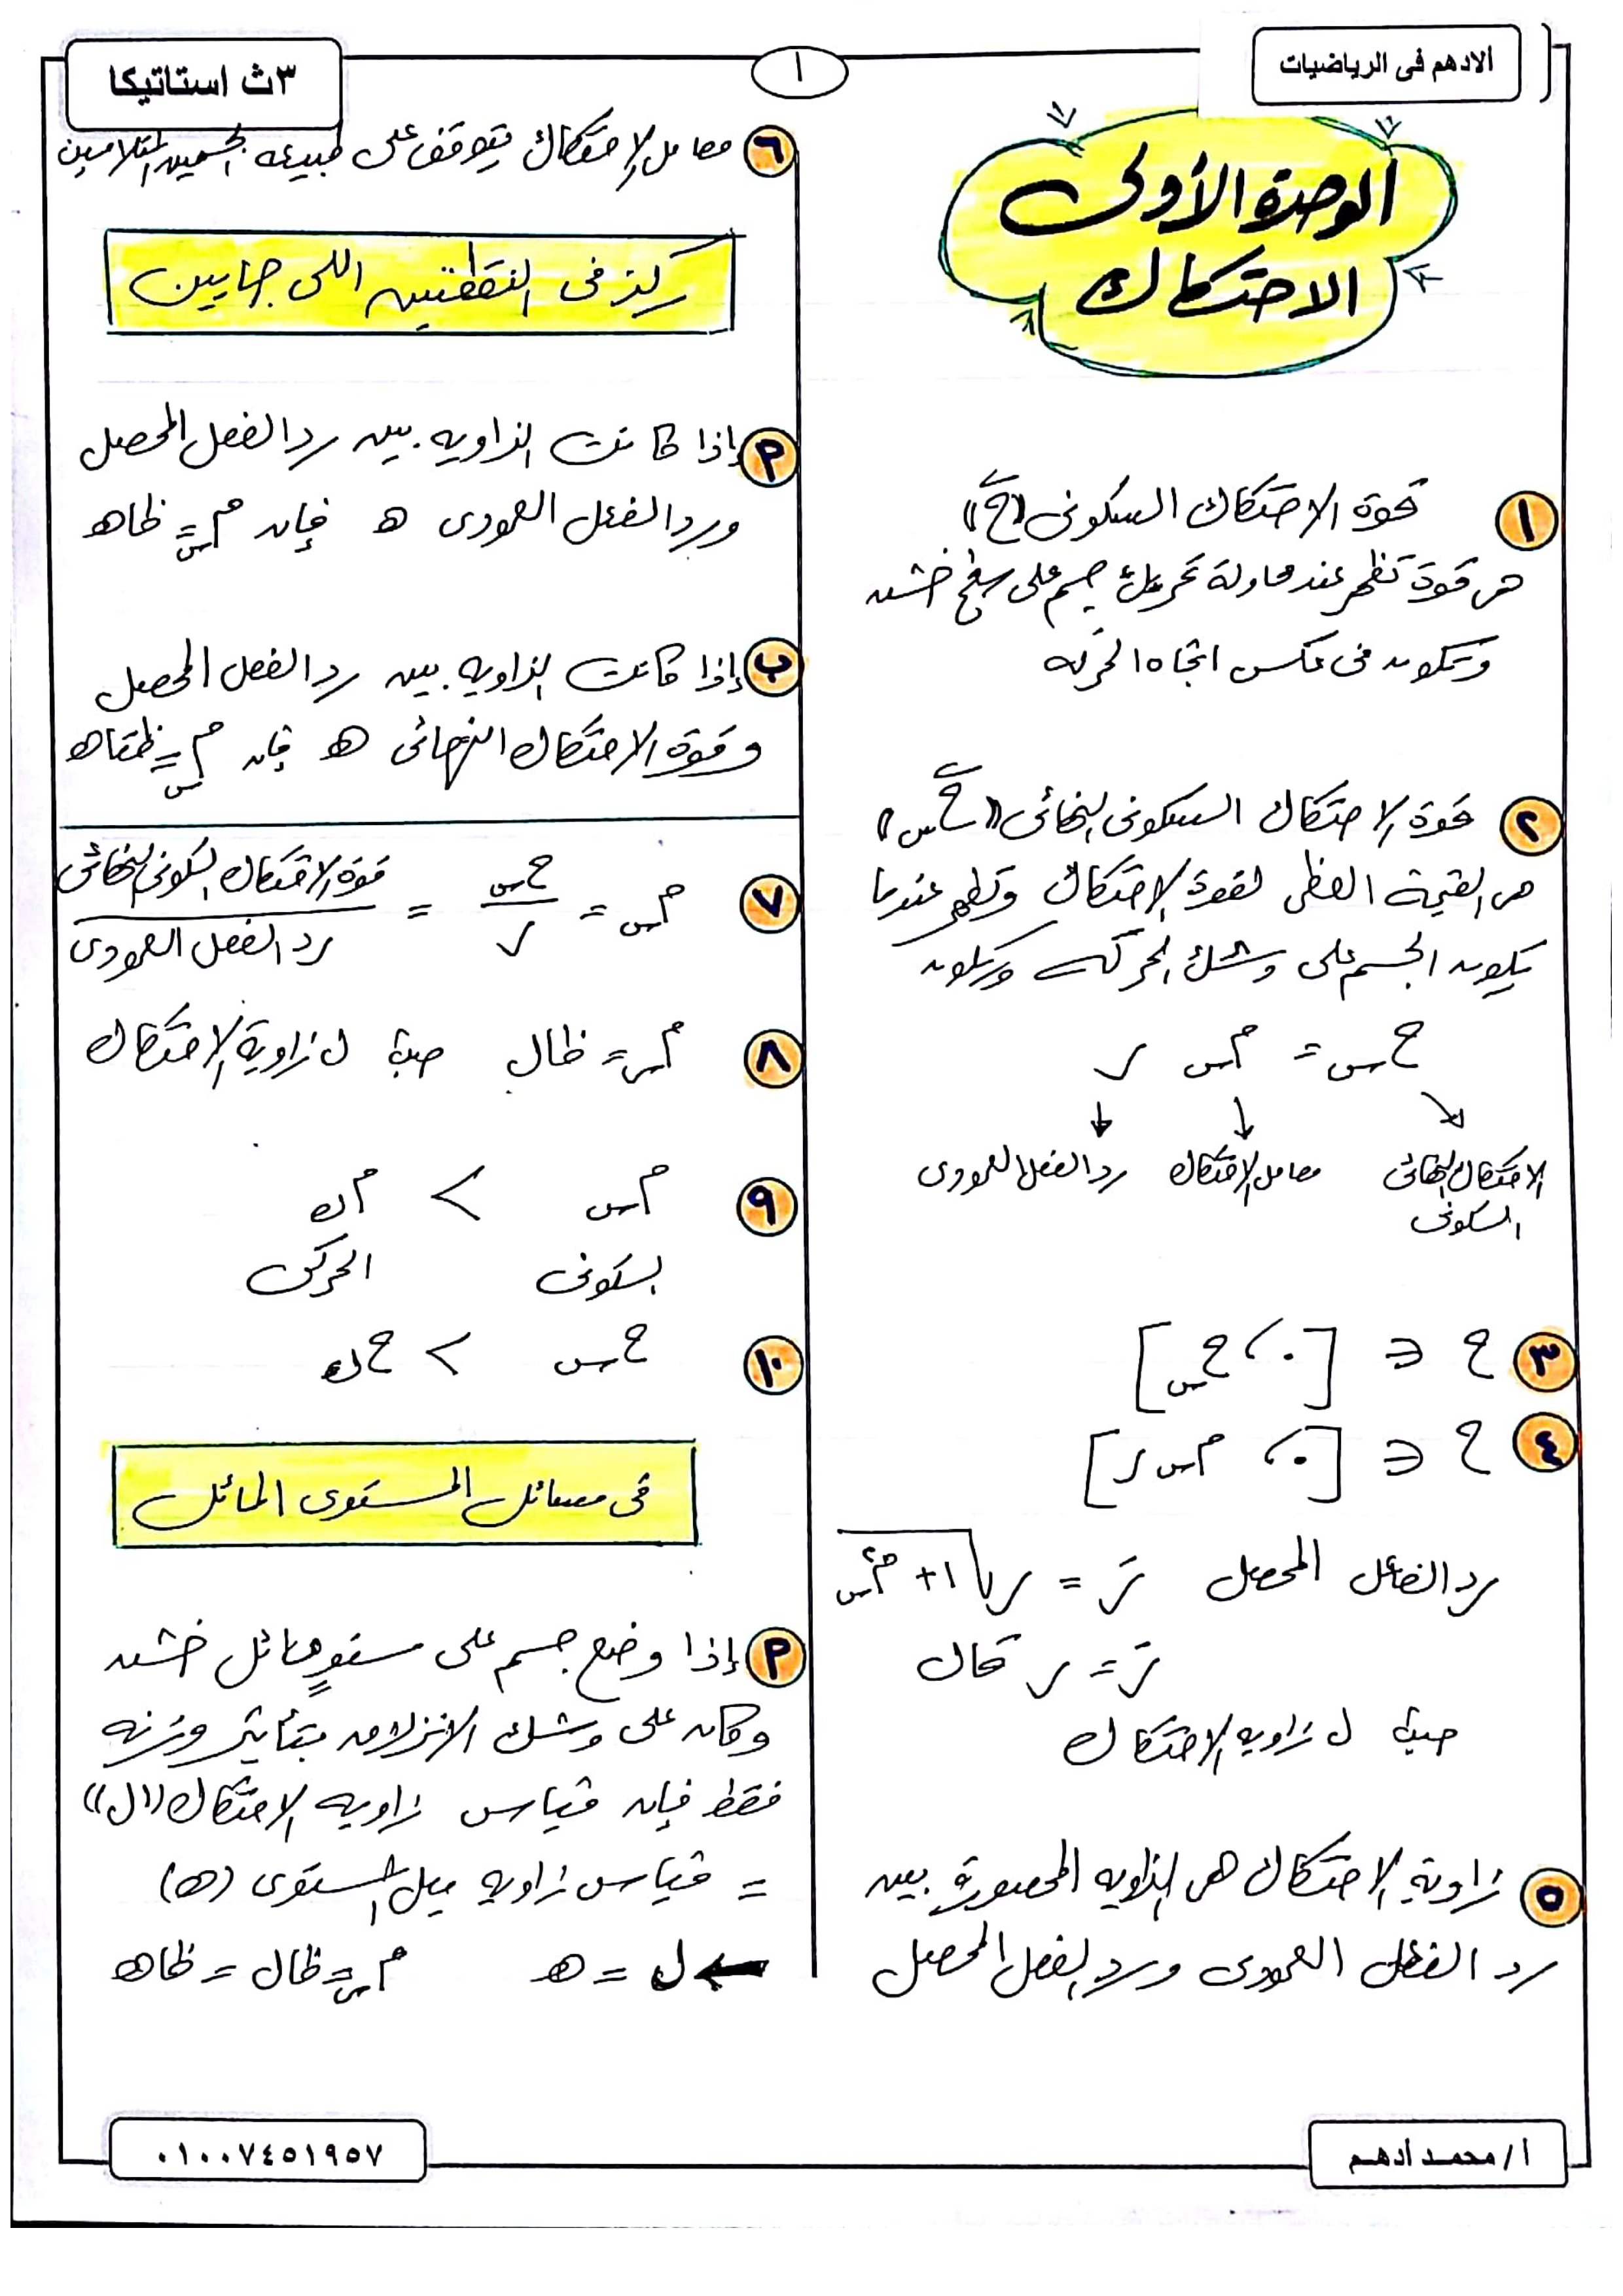 الادهم فى الرياضيات
١
٣ث استاتيكا
الوحدة الأولى
الاحتكاك
١ قوة الاحتكاك السكونى «ح»
هى قوة تظهر عند محاولة تحريك جسم على سطح خشن
وتكون فى عكس اتجاه الحركه
٢ قوة الاحتكاك السكونى النهائى «ح س»
هى القيمة العظمى لقوة الاحتكاك وتظهر عندما
يكون الجسم على وشك الحركه ويكون
ح س = م س ر
الاحتكاك النهائى السكونى
معامل الاحتكاك
رد الفعل العمودى
٣ ح ∈ [٠، ح س]
٤ ح ∈ [٠، م س ر]
رد الفعل المحصل رَ = ر √(١ + م²س)
رَ = ر قا ل
حيث ل زاويه الاحتكاك
٥ زاوية الاحتكاك هى الزاويه المحصورة بين
رد الفعل العمودى ورد الفعل المحصل
٦ معامل الاحتكاك يتوقف على طبيعه الجسمين المتلامسين
ركز فى النقطتين اللى جايين
م إذا كانت الزاويه بين رد الفعل المحصل
ورد الفعل العمودى هـ فإن م س = ظا هـ
ب إذا كانت الزاويه بين رد الفعل المحصل
وقوة الاحتكاك النهائى هـ فإن م س = ظتا هـ
٧ م س = ح س / ر = قوة الاحتكاك السكونى النهائى / رد الفعل العمودى
٨ م س = ظا ل حيث ل زاوية الاحتكاك
٩ م س > م ك
السكونى الحركى
١٠ ح س > ح ك
فى مسائل المستوى المائل
م إذا وضع جسم على مستوٍ مائل خشن
وكان على وشك الانزلاق بتأثير وزنه
فقط فإن قياس زاويه الاحتكاك «ل»
= قياس زاويه ميل المستوى (هـ)
← ل = هـ م س = ظا ل = ظا هـ
أ/ محمد أدهم
٠١٠٠٧٤٥١٩٥٧